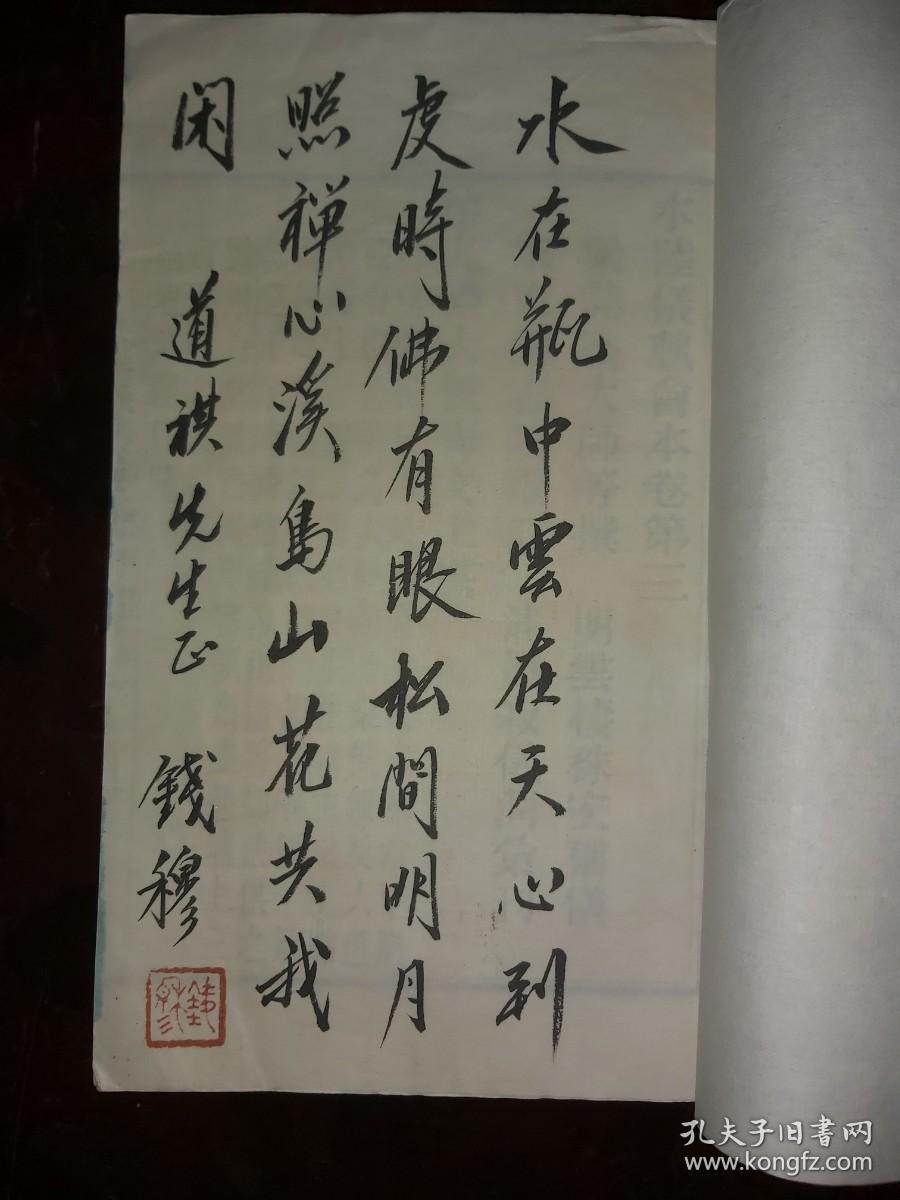 水在瓶中雲在天心到
處時佛有眼松間明月
照禅心溪鳥山花共我
闲 道祺先生正 錢穆
錢穆
孔夫子旧书网
www.kongfz.com